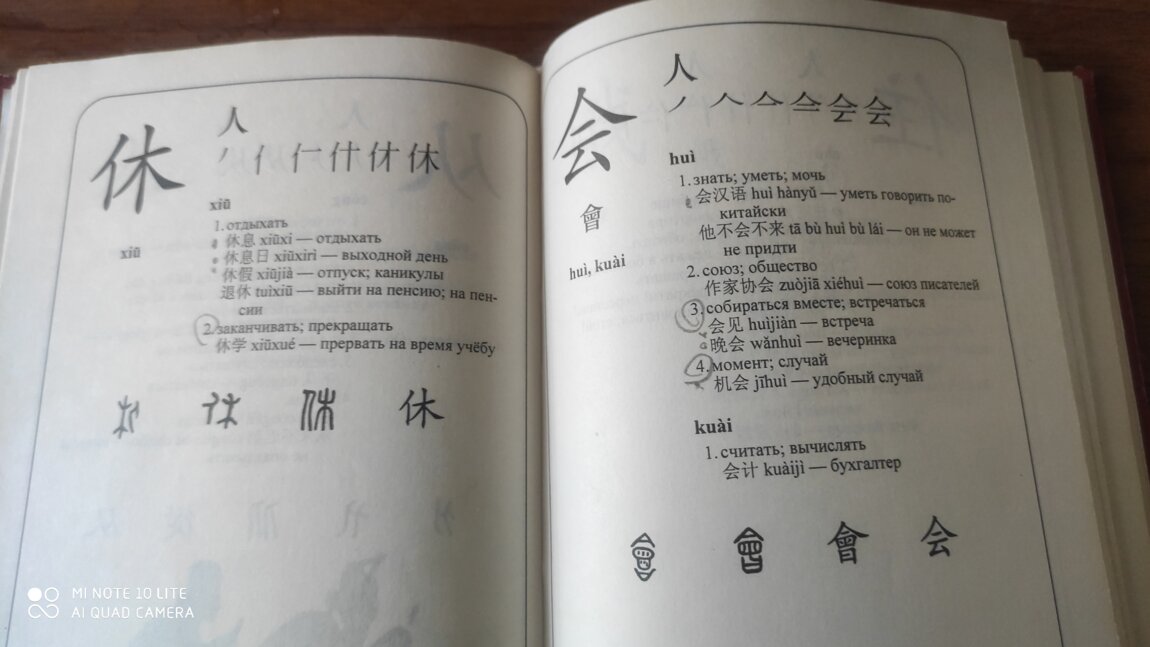 人
休
丿 亻 仁 什 休 休
xiū
xiū
1. отдыхать
休息 xiūxi — отдыхать
休息日 xiūxirì — выходной день
休假 xiūjià — отпуск; каникулы
退休 tuìxiū — выйти на пенсию; на пен-
сии
2. заканчивать; прекращать
休学 xiūxué — прервать на время учёбу
休
人
会
丿 人 亼 会 会
會
huì, kuài
huì
1. знать; уметь; мочь
会汉语 huì hànyŭ — уметь говорить по-
китайски
他不会不来 tā bù huì bù lái — он не может
не придти
2. союз; общество
作家协会 zuòjiā xiéhuì — союз писателей
3. собираться вместе; встречаться
会见 huìjiàn — встреча
晚会 wǎnhuì — вечеринка
4. момент; случай
机会 jīhuì — удобный случай
kuài
1. считать; вычислять
会计 kuàijì — бухгалтер
會 会
MI NOTE 10 LITE
AI QUAD CAMERA